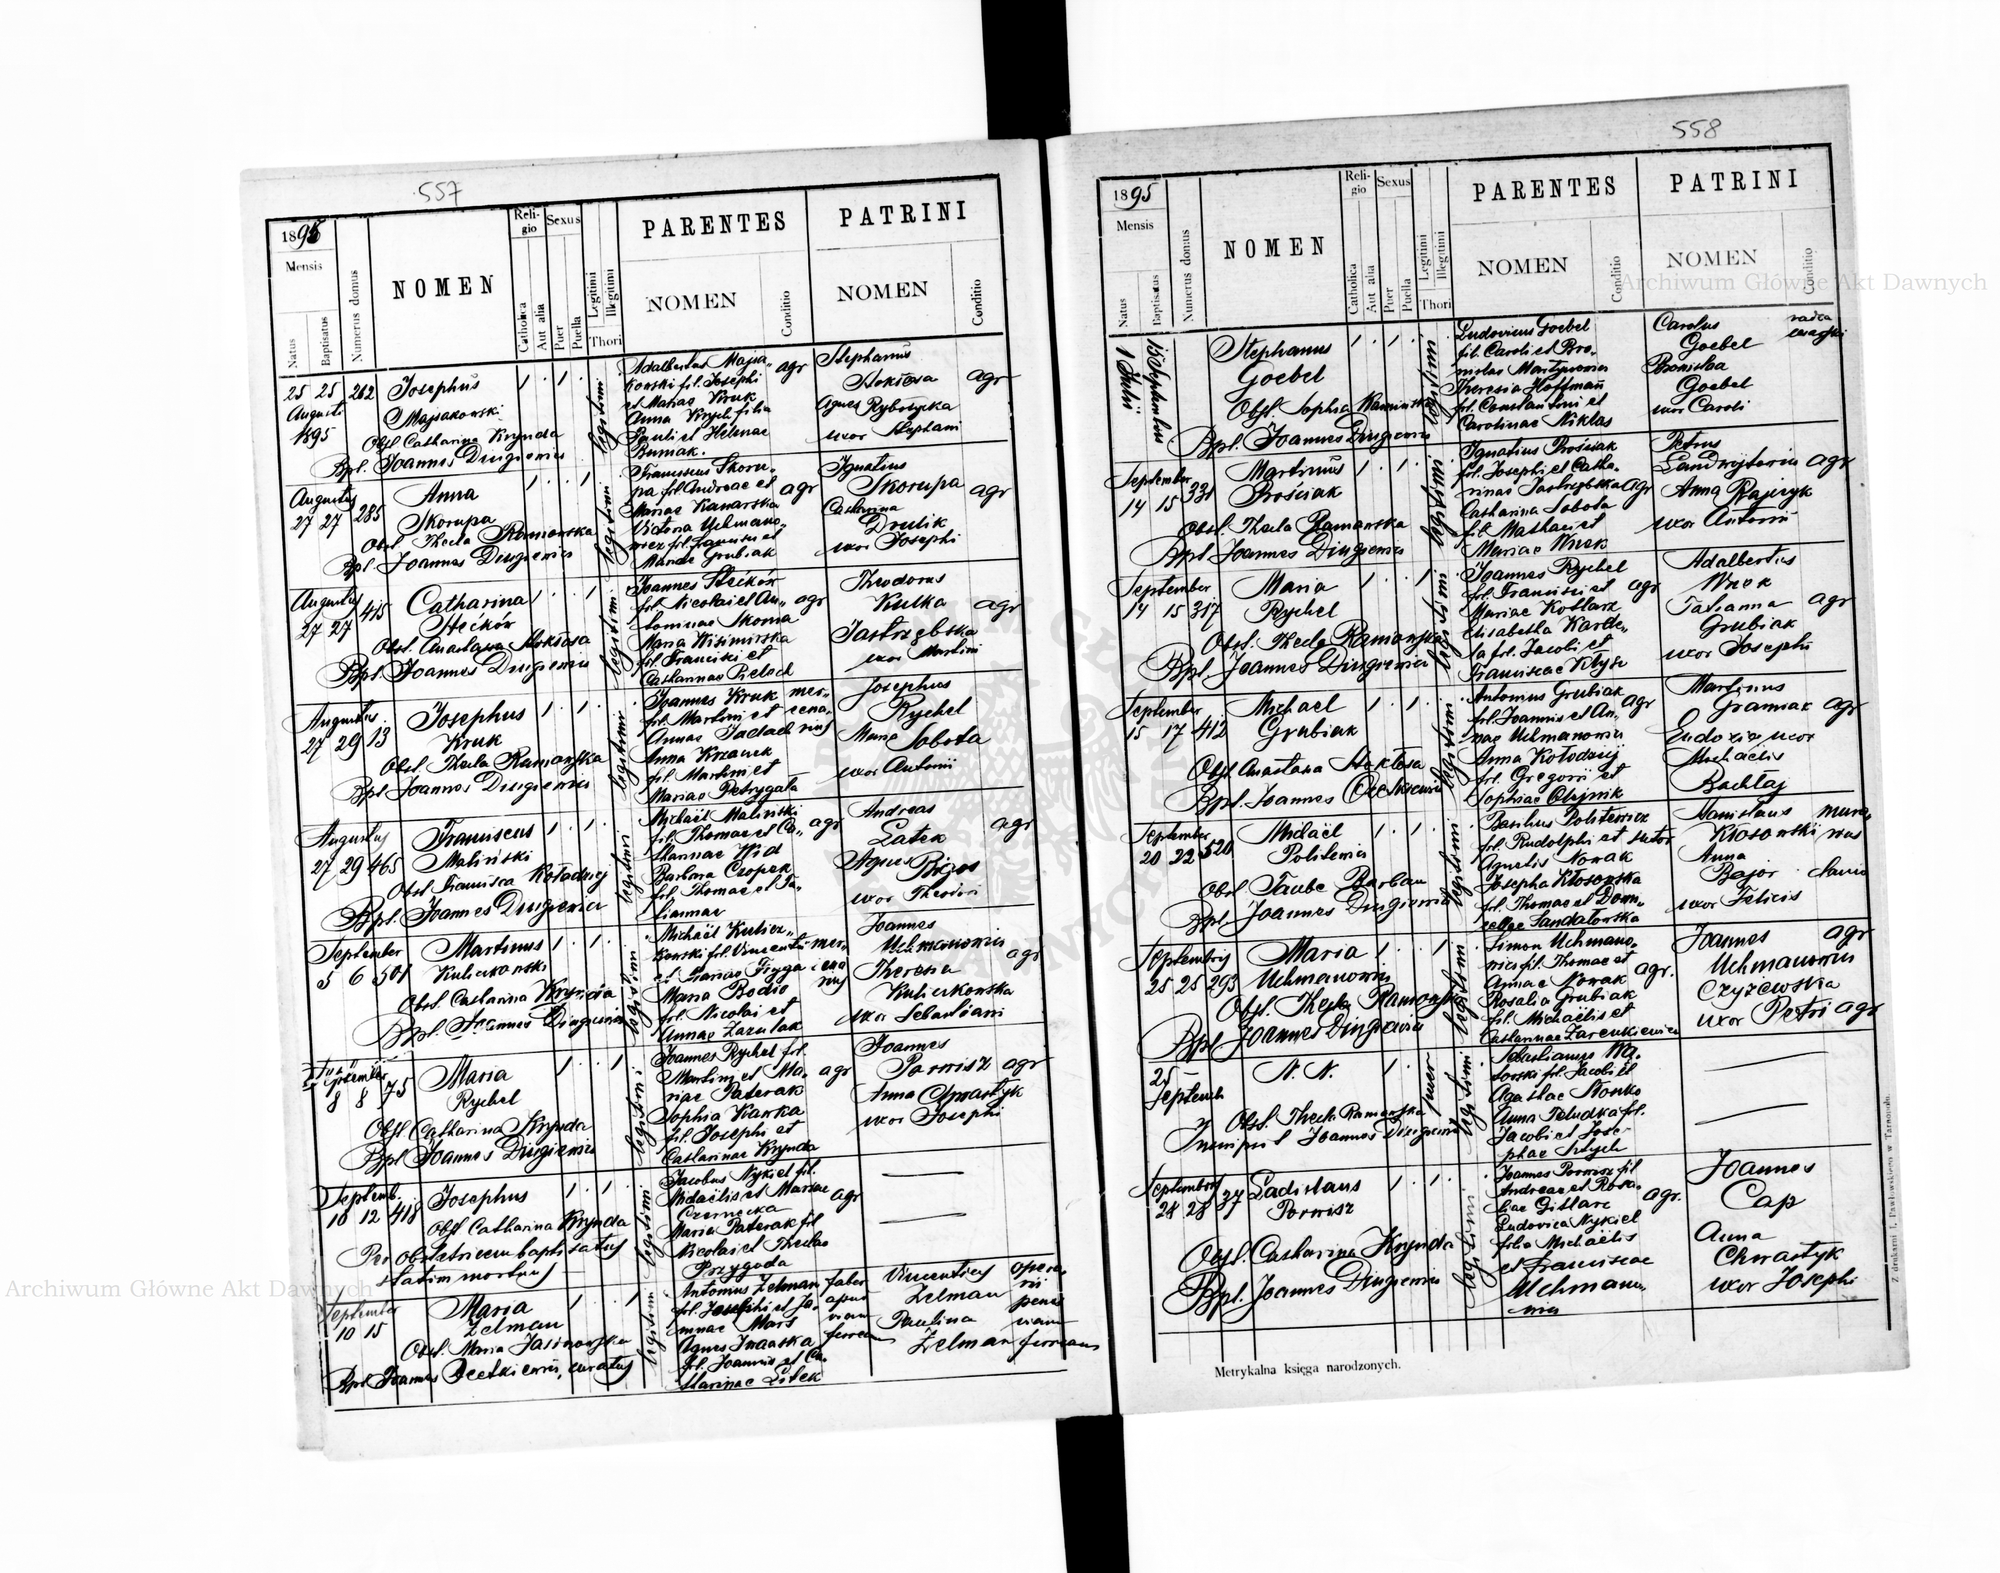 557
1895
Mensis
Natus
Baptisatus
Numerus domus
NOMEN
Religio
Catholica
Aut alia
Sexus
Puer
Puella
Legitimi
Illegitimi
Thori
PARENTES
NOMEN
Conditio
PATRINI
NOMEN
Conditio
25 25 262
Augusti
1895
Josephus
Majsakowski
Obst. Catharina Krynda
Bpt. Joannes Dzugiewicz
legitimi
Adalbertus Majsa-
kowski fil. Josephi
et Mariae Kruk
Anna Krych filia
Pauli et Helenae
agr
Stephanus
Stokłosa
Agnes
uxor Stephani
agr
Augustus
27 27 285
Anna
Skorupa
Obst. Thecla Ramanska
Bpt. Joannes Dzugiewicz
legitimi
Franciscus Skoru-
pa fil. Andreae et
Mariae
Victoria Uchmano-
wicz fil. Francisci et
Mariae Grubiak
agr
Ignatius
Skorupa
Catharina
Drulik
uxor Josephi
agr
Augustus
27 27 415
Catharina
Stećków
Obst. Anastasia Stokłosa
Bpt. Joannes Dzugiewicz
legitimi
Joannes Stećków
fil. Nicolai et An-
toninae Skoma
Maria Wisimirska
fil. Francisci et
Catharinae Pietuch
agr
Theodorus
Kulka
Jastrzębska
uxor Martini
agr
Augustus
27 29 13
Josephus
Kruk
Obst. Thecla Ramanska
Bpt. Joannes Dzugiewicz
legitimi
Joannes Kruk mer-
fil. Martini et cena-
Annae Sadach rius
Anna
fil. Martini et
Mariae Petrygała
Josephus
Rychel
Maria
Sobota
uxor Antonii
Augustus
27 29 465
Franciscus
Maliński
Obst. Francisca Kołodziej
Bpt. Joannes Dzugiewicz
legitimi
Michaël Maliński
fil. Thomae et Ca-
tharinae Wid
Barbara Czopek
fil. Thomae et Ta-
tiannae
agr
Andreas
Łatek
Agnes
uxor Theodori
agr
September
5 6 501
Martinus
Kulickowski
Obst. Catharina Krynda
Bpt. Joannes Dzugiewicz
legitimi
Michaël Kulicz-
kowski fil. Vincentii mer-
et Mariae Fryga cena
Maria Bodio rius
fil. Nicolai et
Annae Zarulak
Joannes
Uchmanowicz
Theresia
Kulickowska
uxor Sebastiani
agr
September
8 8 75
Maria
Rychel
Obst. Catharina Krynda
Bpt. Joannes Dzugiewicz
legitimi
Joannes Rychel fil.
Martini et Ma-
riae Paterak
Sophia Kawka
fil. Josephi et
Catharinae Krynda
agr
Joannes
Porwisz
Anna Chwastyk
uxor Josephi
agr
Septemb.
10 12 418
Josephus
Obst. Catharina Krynda
Per obstetricem baptisatus
statim mortuus
legitimi
Jacobus Nykiel fil.
Michaëlis et Mariae
Czernecka
Maria Paterak fil.
Nicolai et Theclae
Przygoda
agr
September
10 15
Maria
Zelman
Obst. Maria Jasinowska
Bpt. Joannes Oleskiewicz, curatus
legitimi
Antonius Zelman faber
fil. Josephi et Jo- apud
annae Mars viam
Agnes Iwanska ferream
fil. Joannis et Ca-
tharinae Litek
Vincentius
Zelman
Paulina
Zelman
operarii
penes
viam
ferream
558
1895
Mensis
Natus
Baptisatus
Numerus domus
NOMEN
Religio
Catholica
Aut alia
Sexus
Puer
Puella
Legitimi
Illegitimi
Thori
PARENTES
NOMEN
Conditio
PATRINI
NOMEN
Conditio
1 Julii
15 Septembris
Stephanus
Goebel
Obst. Sophia Kaminska
Bpt. Joannes Dzugiewicz
legitimi
Ludovicus Goebel
fil. Caroli et Bro-
nislae Martynowicz
Theresia Hoffmann
fil. Constantini et
Carolinae Niklas
Carolus
Goebel
Bronislaa
Goebel
uxor Caroli
radca
cesarski
September
14 15 331
Martinus
Prościak
Obst. Thecla Ramanska
Bpt. Joannes Dzugiewicz
legitimi
Ignatius Prościak
fil. Josephi et Catha-
rinae Jastrzębska agr
Catharina Sobota
fil. Mathaei et
Mariae Wnek
Petrus
Landwójtowicz agr
Anna Rajczyk
uxor Antonii
September
14 15 317
Maria
Rychel
Obst. Thecla Ramanska
Bpt. Joannes Dzugiewicz
legitimi
Joannes Rychel
fil. Francisci et agr
Mariae Kotlarz
Elisabetha Karde-
la fil. Jacobi et
Franciscae Kłyż
Adalbertus
Wnek
Tatianna agr
Grubiak
uxor Josephi
September
15 17 412
Michael
Grubiak
Obst. Anastasia Stokłosa
Bpt. Joannes Oleskiewicz
legitimi
Antonius Grubiak
fil. Joannis et An- agr
nae Uchmanowicz
Anna Kołodziej
fil. Gregorii et
Sophiae Olejnik
Martinus
Graniak agr
Eudoxia uxor
Michaëlis
Bochtaj
September
20 22 520
Michaël
Politewicz
Obst. Taube Barban
Bpt. Joannes Dzugiewicz
legitimi
Basilius Politewicz
fil. Rudolphi et sutor
Agnetis Nowak
Josepha Kłosowska
fil. Thomae et Domi-
cellae Sandałowska
Stanislaus
Kłosowski
Anna
Bajor
uxor Felicis
Septembris
25 25 293
Maria
Uchmanowicz
Obst. Thecla Ramanska
Bpt. Joannes Dzugiewicz
legitimi
Simon Uchmano-
wicz fil. Thomae et
Annae Nowak agr.
Rosalia Grubiak
fil. Michaëlis et
Catharinae Zarenkiewicz
Joannes agr
Uchmanowicz
Czyżewska
uxor Petri agr
25
Septemb
N. N.
Obst. Thecla Ramanska
Joannes Dzugiewicz
puer
legitimi
Sebastianus Wa-
fil. Jacobi et
Agathae Stonko
Anna Peludka fil.
Jacobi et Jose-
phae Sztych
Septembris
28 28 37
Ladislaus
Porwisz
Obst. Catharina Krynda
Bpt. Joannes Dzugiewicz
legitimi
Joannes Porwisz fil
Andreae et Rosa-
liae Gitlarz agr.
Ludovica Nykiel
filia Michaëlis
et Franciscae
Uchmano-
wicz
Joannes
Cap
Anna
Chwastyk
uxor Josephi
Metrykalna księga narodzonych.
Z drukarni J. Pawłowskiego w Tarnowie.
Archiwum Główne Akt Dawnych
Archiwum Główne Akt Dawnych